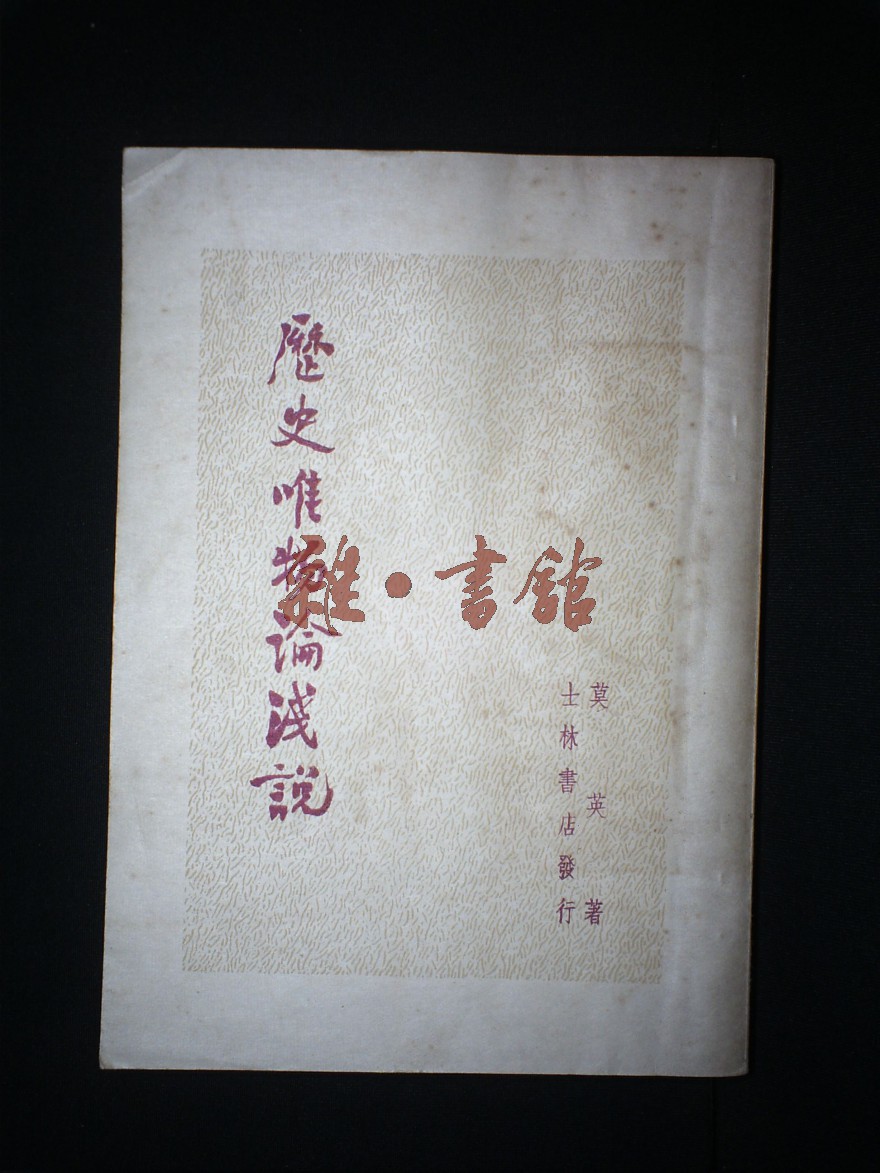 莫英著
士林書店發行
歷史唯物論淺說
雜·書館